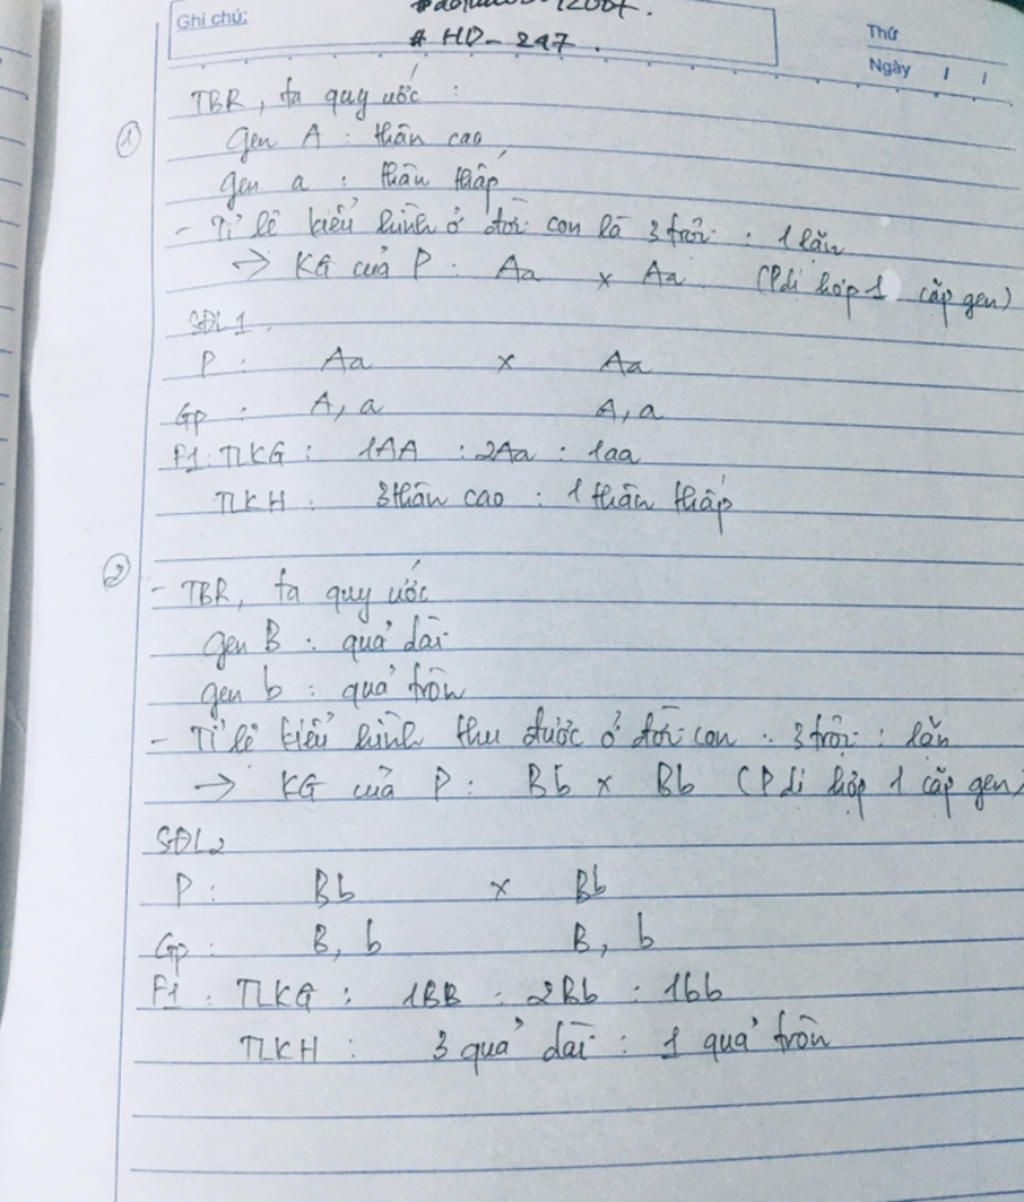 Ghi chú:
# HD - 247.
Thứ
Ngày / /
TBR, ta quy ước :
① gen A : thân cao
gen a : thân thấp
- Tỉ lệ kiểu hình ở đời con là 3 trội : 1 lặn
-> KG của P : Aa x Aa (P dị hợp 1 cặp gen)
SĐL1.
P : Aa x Aa
Gp : A, a A, a
F1: TLKG : 1AA : 2Aa : 1aa
TLKH : 3 thân cao : 1 thân thấp
②
- TBR, ta quy ước
gen B : quả dài
gen b : quả tròn
- Tỉ lệ kiểu hình thu được ở đời con : 3 trội : lặn
-> KG của P : Bb x Bb (P dị hợp 1 cặp gen)
SĐL2
P : Bb x Bb
Gp : B, b B, b
F1 : TLKG : 1BB : 2Bb : 1bb
TLKH : 3 quả dài : 1 quả tròn